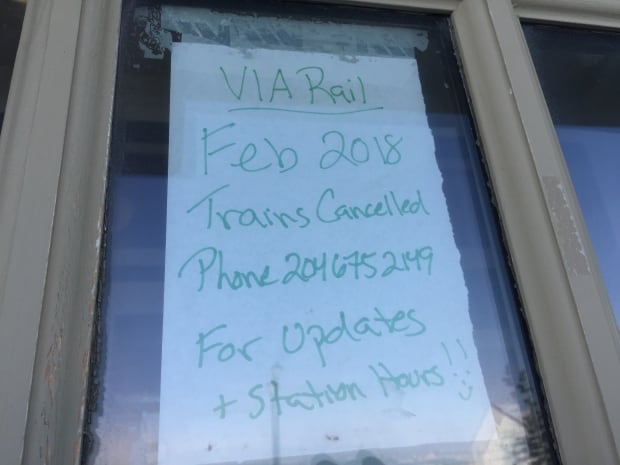 VIA Rail
Feb 2018
Trains Cancelled
Phone 204 675 2149
For Updates
+ Station Hours!!